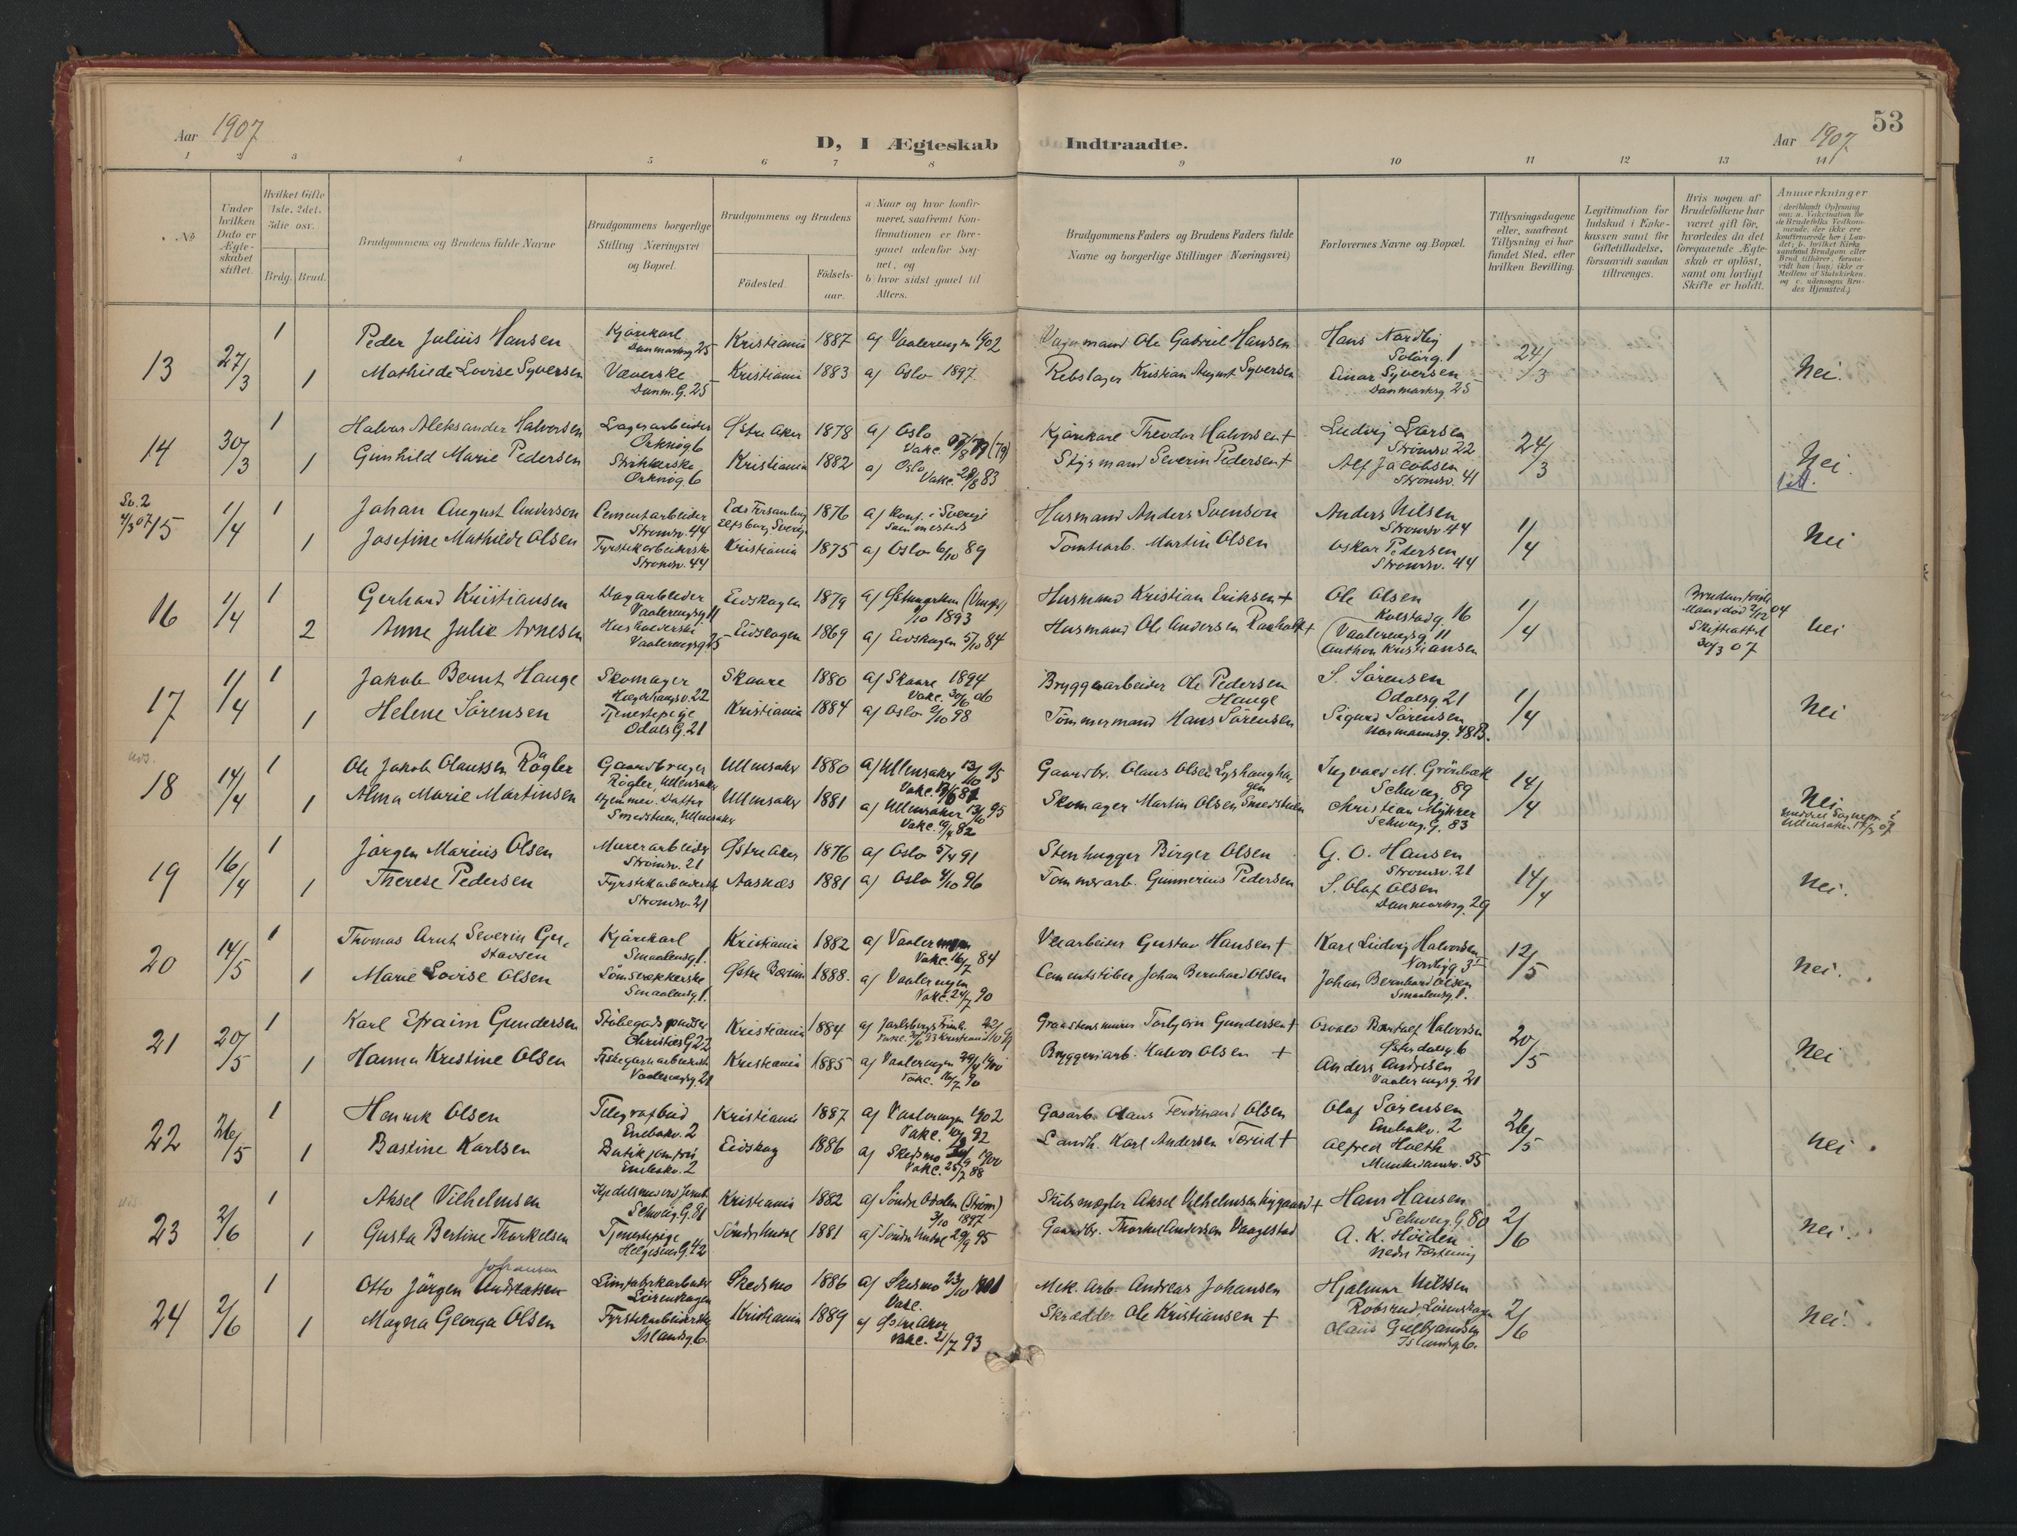 53
Aar 1907
D, I Ægteskab Indtraadte.
Aar 1907
1 2 3 4 5 6 7 8 9 10 11 12 13 14
No
Under hvilken Dato er Ægteskabet stiftet.
Hvilket Gifte 1ste, 2det, 3die osv.
Brdg. Brud.
Brudgommens og Brudens fulde Navne
Brudgommens borgerlige Stilling Næringsvei og Bopæl.
Brudgommens og Brudens
Fødested. Fødsels-aar.
a) Naar og hvor konfirmeret, saafremt Konfirmationen er foregaaet udenfor Sognet, og
b) hvor sidst gaaet til Alters.
Brudgommens Faders og Brudens Faders fulde Navne og borgerlige Stillinger (Næringsvei)
Forlovernes Navne og Bopæl.
Tillysningsdagene eller, saafremt Tillysning ei har fundet Sted, efter hvilken Bevilling.
Legitimation for Indskud i Enkekassen samt for Giftetilladelse, forsaavidt saadan tiltrænges.
Hvis nogen af Brudefolkene har været gift før, hvorledes da det foregaaende Ægteskab er opløst, samt om lovligt Skifte er holdt.
Anmærkninger
13 27/3 1 Peder Julius Hansen Kjørekarl Danmarksg 25 Kristiania 1887 a) Vaalerengen 1902 Vognmand Ole Gabriel Hansen Hans Nordby Solørg. 1 24/3 Nei.
1 Mathilde Lovise Syversen Væverske Danm. G. 25 Kristiania 1883 a) Oslo 1897 Rebslager Kristian August Syversen Einar Syversen Danmarksg 25
14 30/3 1 Halvor Aleksander Halvorsen Lagerarbeider Orknøg 6 Østre Aker 1878 a) Oslo Kjørekarl Theodor Halvorsen + Ludvig Larsen Strømsv. 22 24/3 Nei.
1 Gunhild Marie Pedersen Strikkerske Orknøg 6 Kristiania 1882 a) Oslo Vakc. 28/8 83 Styrmand Severin Pedersen + Alf Jacobsen Strømsv. 41
15 1/4 1 Johan August Anderson Cementarbeider Strømsv. 44 Eds Forsamling Elfsborg Sverige 1876 a) Konf. i Sverige sammesteds Husmand Anders Svenson Anders Nilsen Strømsv. 44 1/4 Nei
1 Josefine Mathilde Olsen Fyrstikarbeiderske Strømsv. 44 Kristiania 1875 a) Oslo 6/10 89 Tomtearb. Martin Olsen Oskar Pedersen Strømsv. 44
16 1/4 1 Gerhard Kristiansen Dagarbeider Vaalerengsg. 11 Eidskogen 1879 1/10 1893 Husmand Kristian Eriksen + Ole Olsen 16 1/4 Nei
2 Anne Julie Arnesen Husholderske Vaalerengsg 25 Eidskogen 1869 a) Eidskogen 5/10 84 Husmand Ole Andersen + Vaalerengsg 11 Anthon Kristiansen 30/3 07
17 1/4 1 Jakob Bernt Hauge Skomager 22 Skaare 1880 a) Skaare 1894 Bryggearbeider Ole Pedersen Hauge S. Sørensen Odalsg 21 1/4 Nei
1 Helene Sørensen Tjenestepige Odals G. 21 Kristiania 1884 a) Oslo 2/10 98 Tømmermand Hans Sørensen Sigurd Sørensen Normannsg. 48 B.
18 14/4 1 Ole Jakob Olaussen Røgler Gaardbruger Røgler, Ullensaker Ullensaker 1880 a) Ullensaker 13/10 95 Gaardbr. Olaus Olsen Ingvald M. Grønbæk Schweg. 89 14/4 Nei
1 Alma Marie Martinsen Hjemmev. Datter Smedstuen, Ullensaker Ullensaker 1881 a) Ullensaker 13/10 95 Vakc. 82 Skomager Martin Olsen Smedstuen Christian Myhrer Schweg. G. 83
19 16/4 1 Jørgen Marius Olsen Murerarbeider Strømsv. 21 Østre Aker 1876 a) Oslo 5/4 91 Stenhugger Birger Olsen G. O. Hansen Strømsv. 21 14/4 Nei.
1 Therese Pedersen Fyrstikarbeiderske Strømsv. 21 Aasnæs 1881 a) Oslo 4/10 96 Tømmerarb. Gunnerius Pedersen S. Olaf Olsen Danmarksg. 29
20 14/5 1 Thomas Arnt Severin Gustavsen Kjørekarl Smaalensg 1. Kristiania 1882 a) Vaalerengen Vakc. 16/7 84 Veiarbeider Gustav Hansen + Karl Ludvig Halvorsen Nordbyg 3 12/5 Nei.
1 Marie Lovise Olsen Smaalensg 1. Østre Bærum 1888. a) Vaalerengen Vakc. 24/7 90 Cementstøber Johan Bernhard Olsen Johan Bernhard Olsen Smaalensg 1.
21 20/5 1 Karl Efraim Gundersen Støbegodspudser Christies G. 22 Kristiania 1884 Graastensmurer Torbjørn Gundersen + Osvald Halvorsen Østerdalsg. 6 20/5 Nei
1 Hanna Kristine Olsen Vaalerengsg. 21 Kristiania 1885 a) Vaalerengen 29/4 1900 Vakc. 16/7 90 Bryggeriarb. Halvor Olsen + Anders Andresen Vaalerengsg. 21
22 26/5 1 Henrik Olsen Telegrafbud Enebakv. 2 Kristiania 1887 a) Vaalerengen 1902 Gasarb. Olaus Ferdinand Olsen Olaf Sørensen Enebakv. 2 26/5 Nei
1 Bastine Karlsen Butikjomfru Enebakv. 2 Eidskog 1886 a) Skedsmo 1900 Vakc. 25/7 88 Landh. Karl Andersen + Alfred Holth Munkedamsv. 55
23 2/6 1 Aksel Vilhelmsen Schweg. G. 81 Kristiania 1882 a) Søndre Odalen (Strøm) 3/10 1897 Skibsmægler Aksel Vilhelmsen + Hans Hansen Schweg. G. 80 2/6 Nei.
1 Gusta Bertine Thorkelsen Tjenestepige Helgesens G. 42 1881 29/9 95 Gaardbr. Thorkel Andersen Vaagestad A. K. Høiden
24 2/6 1 Otto Jørgen Andreassen Johansen Limfabrikarbeider Lørenskogen Skedsmo 1886 a) Skedsmo 23/10 1901 Vakc. Mek. Arb. Andreas Johansen Hjalmar Nilssen Robsrud Lørenskogen 2/6 Nei.
1 Magna Georga Olsen Fyrstikarbeiderske Islandsg. 6. Kristiania 1889 a) Østre Aker Vakc. 21/7 93 Skrædder Ole Kristiansen + Olaus Gulbrandsen Islandsg. 6.